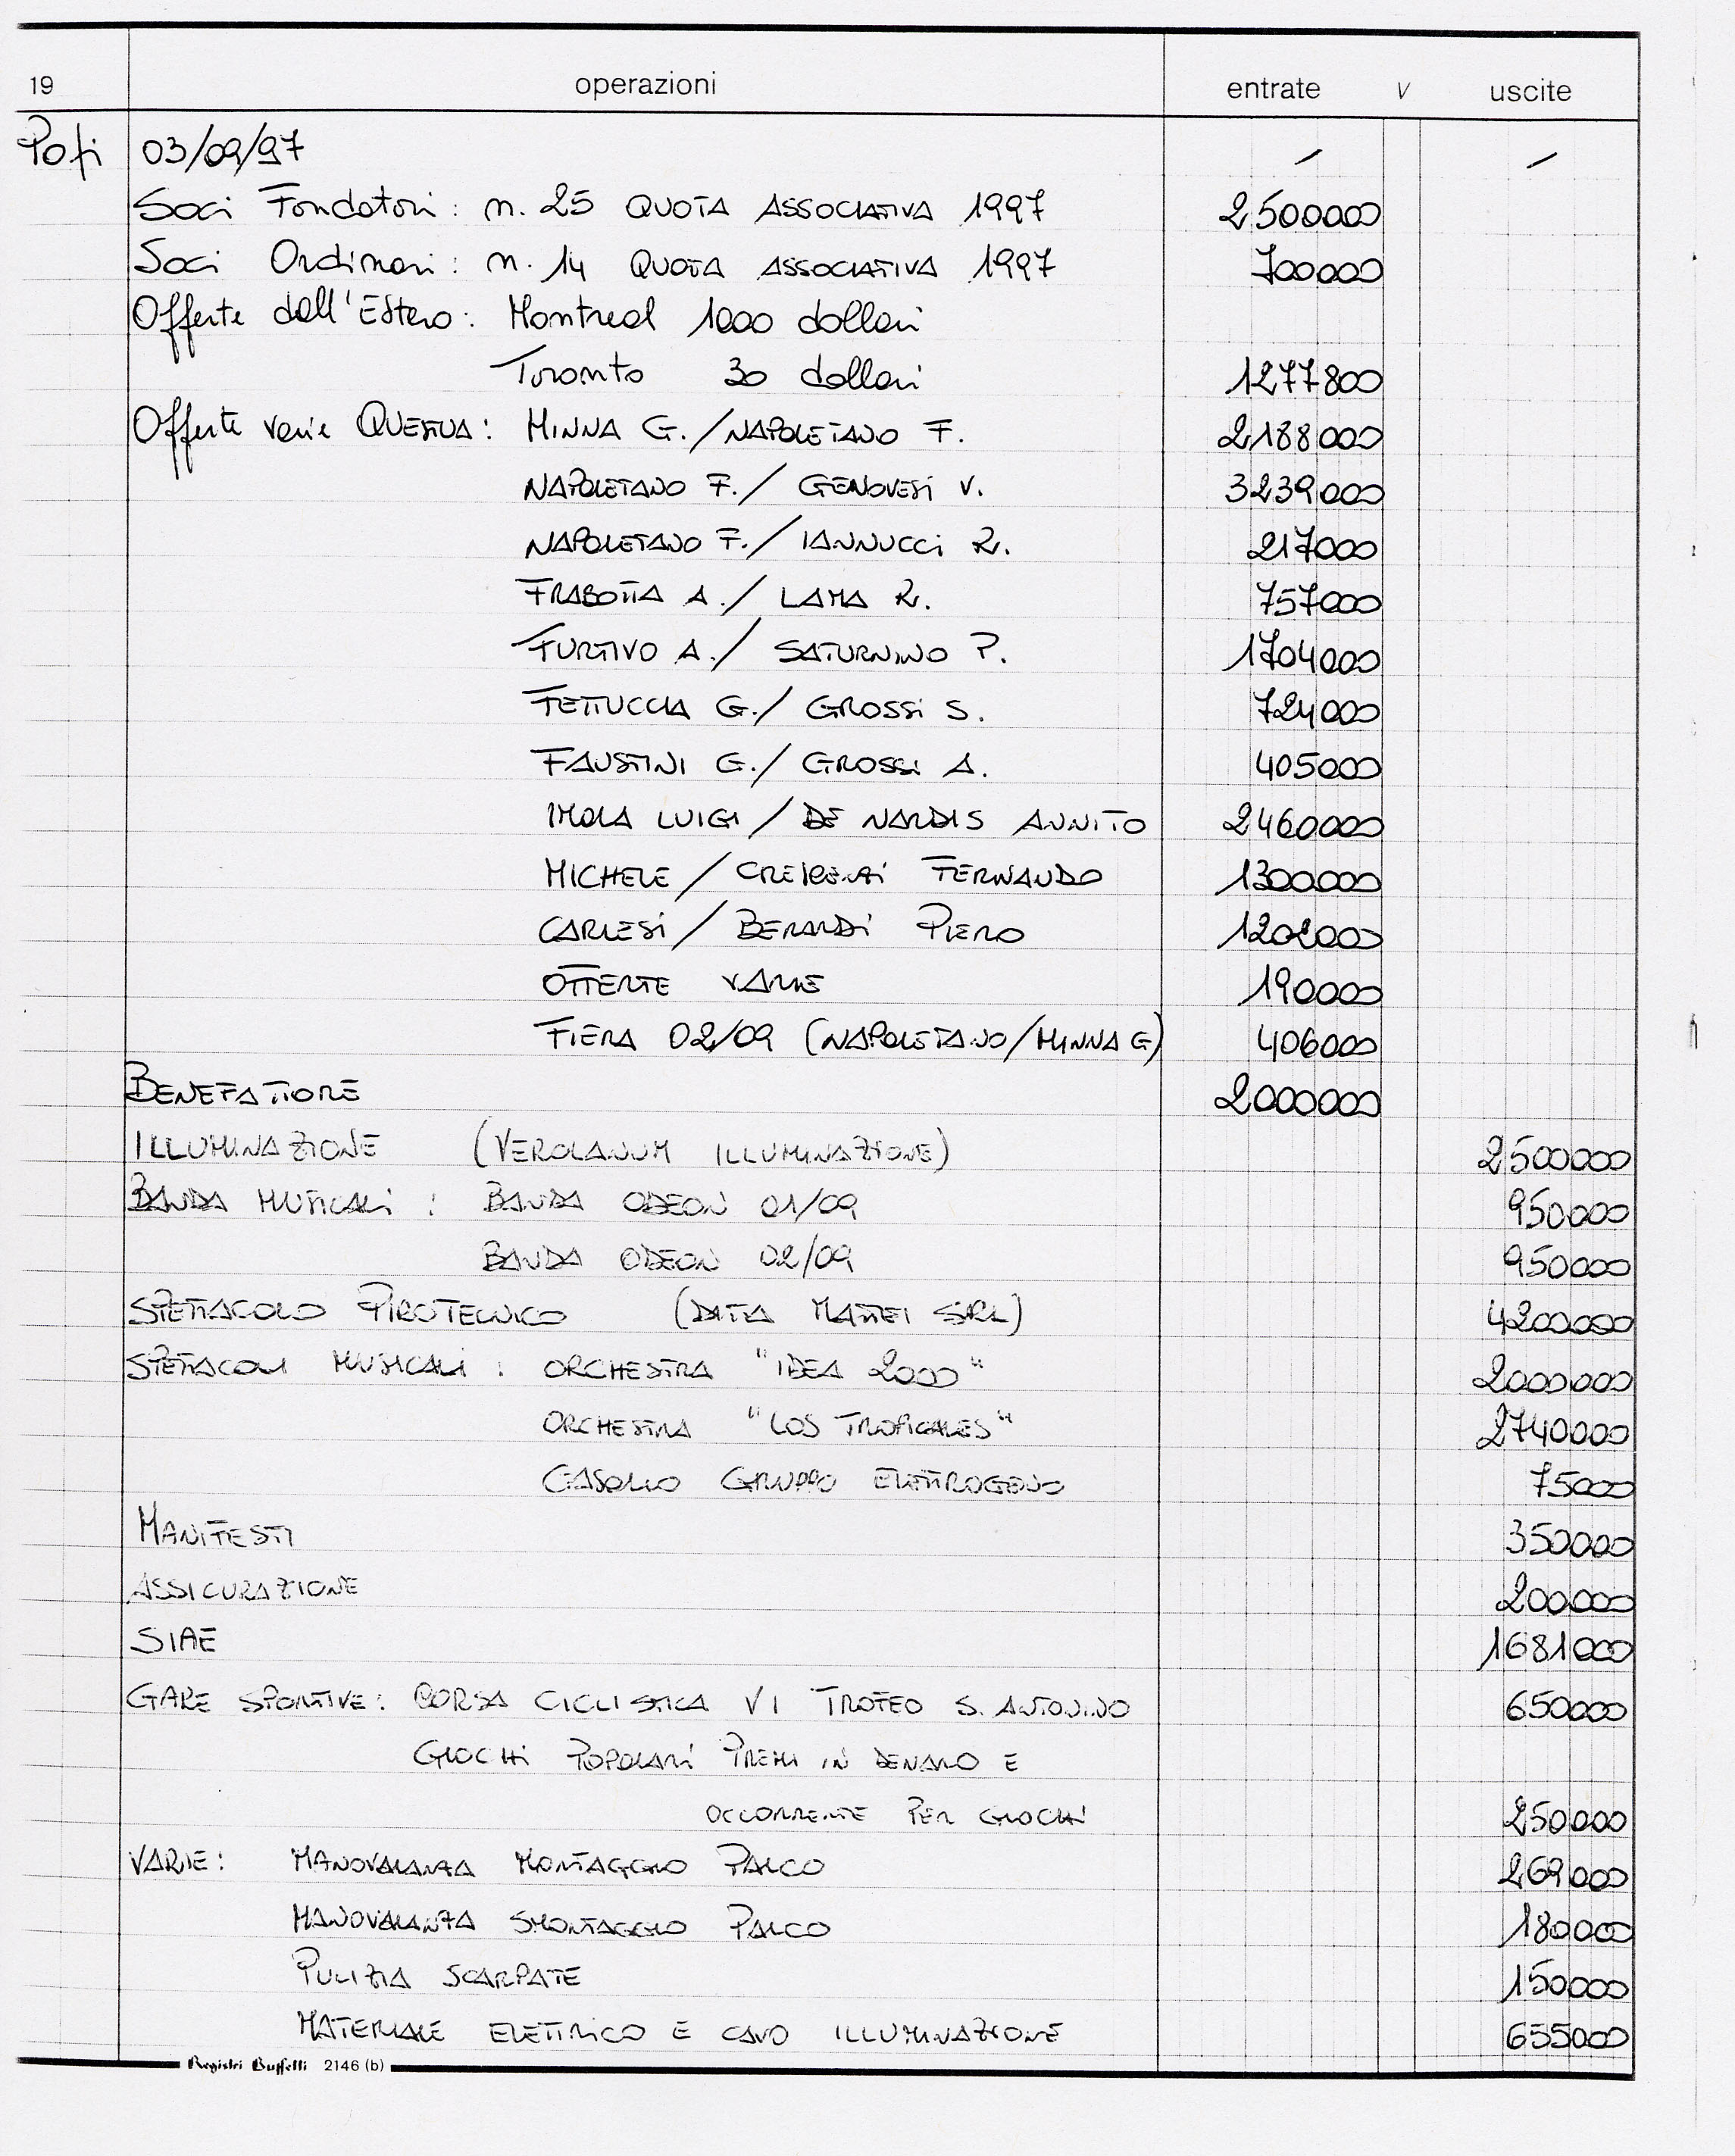 19 operazioni entrate V uscite
Pofi 03/09/97 / /
Soci Fondatori: n. 25 QUOTA ASSOCIATIVA 1997 2500000
Soci Ordinari: n. 14 QUOTA ASSOCIATIVA 1997 700000
Offerte dall'Estero: Montreal 1000 dollari
Toronto 30 dollari 1277800
Offerte varie QUESTUA: MINNA G./NAPOLETANO F. 2188000
NAPOLETANO F./ GENOVESI V. 3239000
NAPOLETANO F./ IANNUCCI R. 217000
FRABOTTA A./ LAMA R. 757000
FURTIVO A./ SATURNINO P. 1704000
FETTUCCIA G./ GROSSI S. 724000
FAUSTINI G./ GROSSI A. 405000
IMOLA LUIGI / DE NARDIS ANNITO 2460000
MICHELE / CRESCENZI FERNANDO 1300000
CARLESI / BERARDI PIERO 1202000
OFFERTE VARIE 190000
FIERA 02/09 (NAPOLETANO/MINNA G) 406000
BENEFATTORE 2000000
ILLUMINAZIONE (VEROLANUM ILLUMINAZIONE) 2500000
BANDA MUSICALI : BANDA ODEON 01/09 950000
BANDA ODEON 02/09 950000
SPETTACOLO PIROTECNICO (DITTA MATTEI SRL) 4200000
SPETTACOLI MUSICALI : ORCHESTRA "IDEA 2000" 2000000
ORCHESTRA "LOS TROPICALES" 2740000
GASOLIO GRUPPO ELETTROGENO 75000
MANIFESTI 350000
ASSICURAZIONE 200000
SIAE 1681000
GARE SPORTIVE: CORSA CICLISTICA VI TROFEO S. ANTONINO 650000
GIOCHI POPOLARI PREMI IN DENARO E
OCCORRENTE PER GIOCHI 250000
VARIE: MANOVALANZA MONTAGGIO PALCO 269000
MANOVALANZA SMONTAGGIO PALCO 180000
PULIZIA SCARPATE 150000
MATERIALE ELETTRICO E CAVO ILLUMINAZIONE 655000
Registri Buffetti 2146 (b)